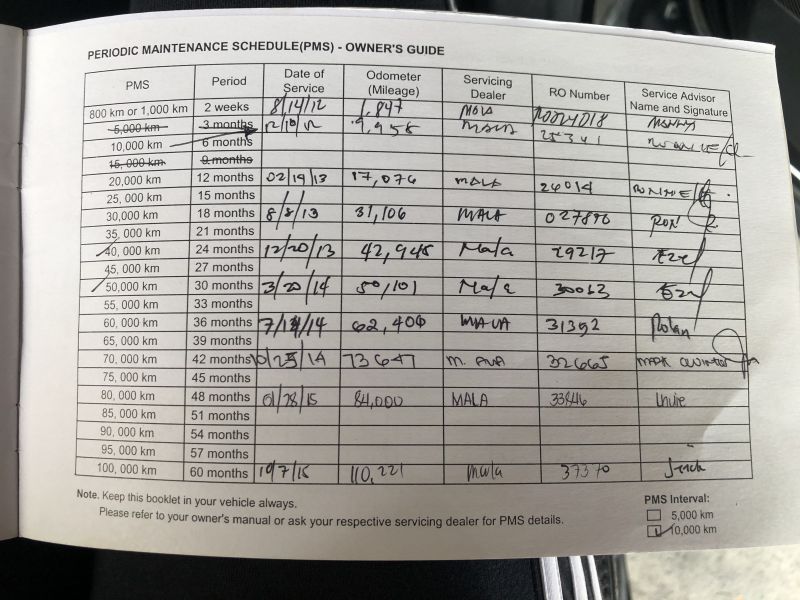 PERIODIC MAINTENANCE SCHEDULE(PMS) - OWNER'S GUIDE
PMS Period Date of Service Odometer (Mileage) Servicing Dealer RO Number Service Advisor Name and Signature
800 km or 1,000 km 2 weeks 8/14/12 1,847 MALA
5,000 km 3 months 12/10/12 9,958 MALA 25341
10,000 km 6 months
15, 000 km 9 months
20,000 km 12 months 02/19/13 17,076 MALA 26014 RONNIE
25, 000 km 15 months
30,000 km 18 months 8/8/13 31,106 MALA 027896 RON
35, 000 km 21 months
40, 000 km 24 months 12/20/13 42,945 Mala 29217
45, 000 km 27 months
50,000 km 30 months 3/20/14 50,101 Mala 30063
55, 000 km 33 months
60, 000 km 36 months 7/19/14 62,400 MALA 31392
65, 000 km 39 months
70, 000 km 42 months 10/25/14 73647 32665 MARK
75, 000 km 45 months
80, 000 km 48 months 01/28/15 84,000 MALA 33846
85, 000 km 51 months
90, 000 km 54 months
95, 000 km 57 months
100, 000 km 60 months 10/7/15 110,221 mala 37370
Note. Keep this booklet in your vehicle always.
Please refer to your owner's manual or ask your respective servicing dealer for PMS details.
PMS Interval:
5,000 km
10,000 km